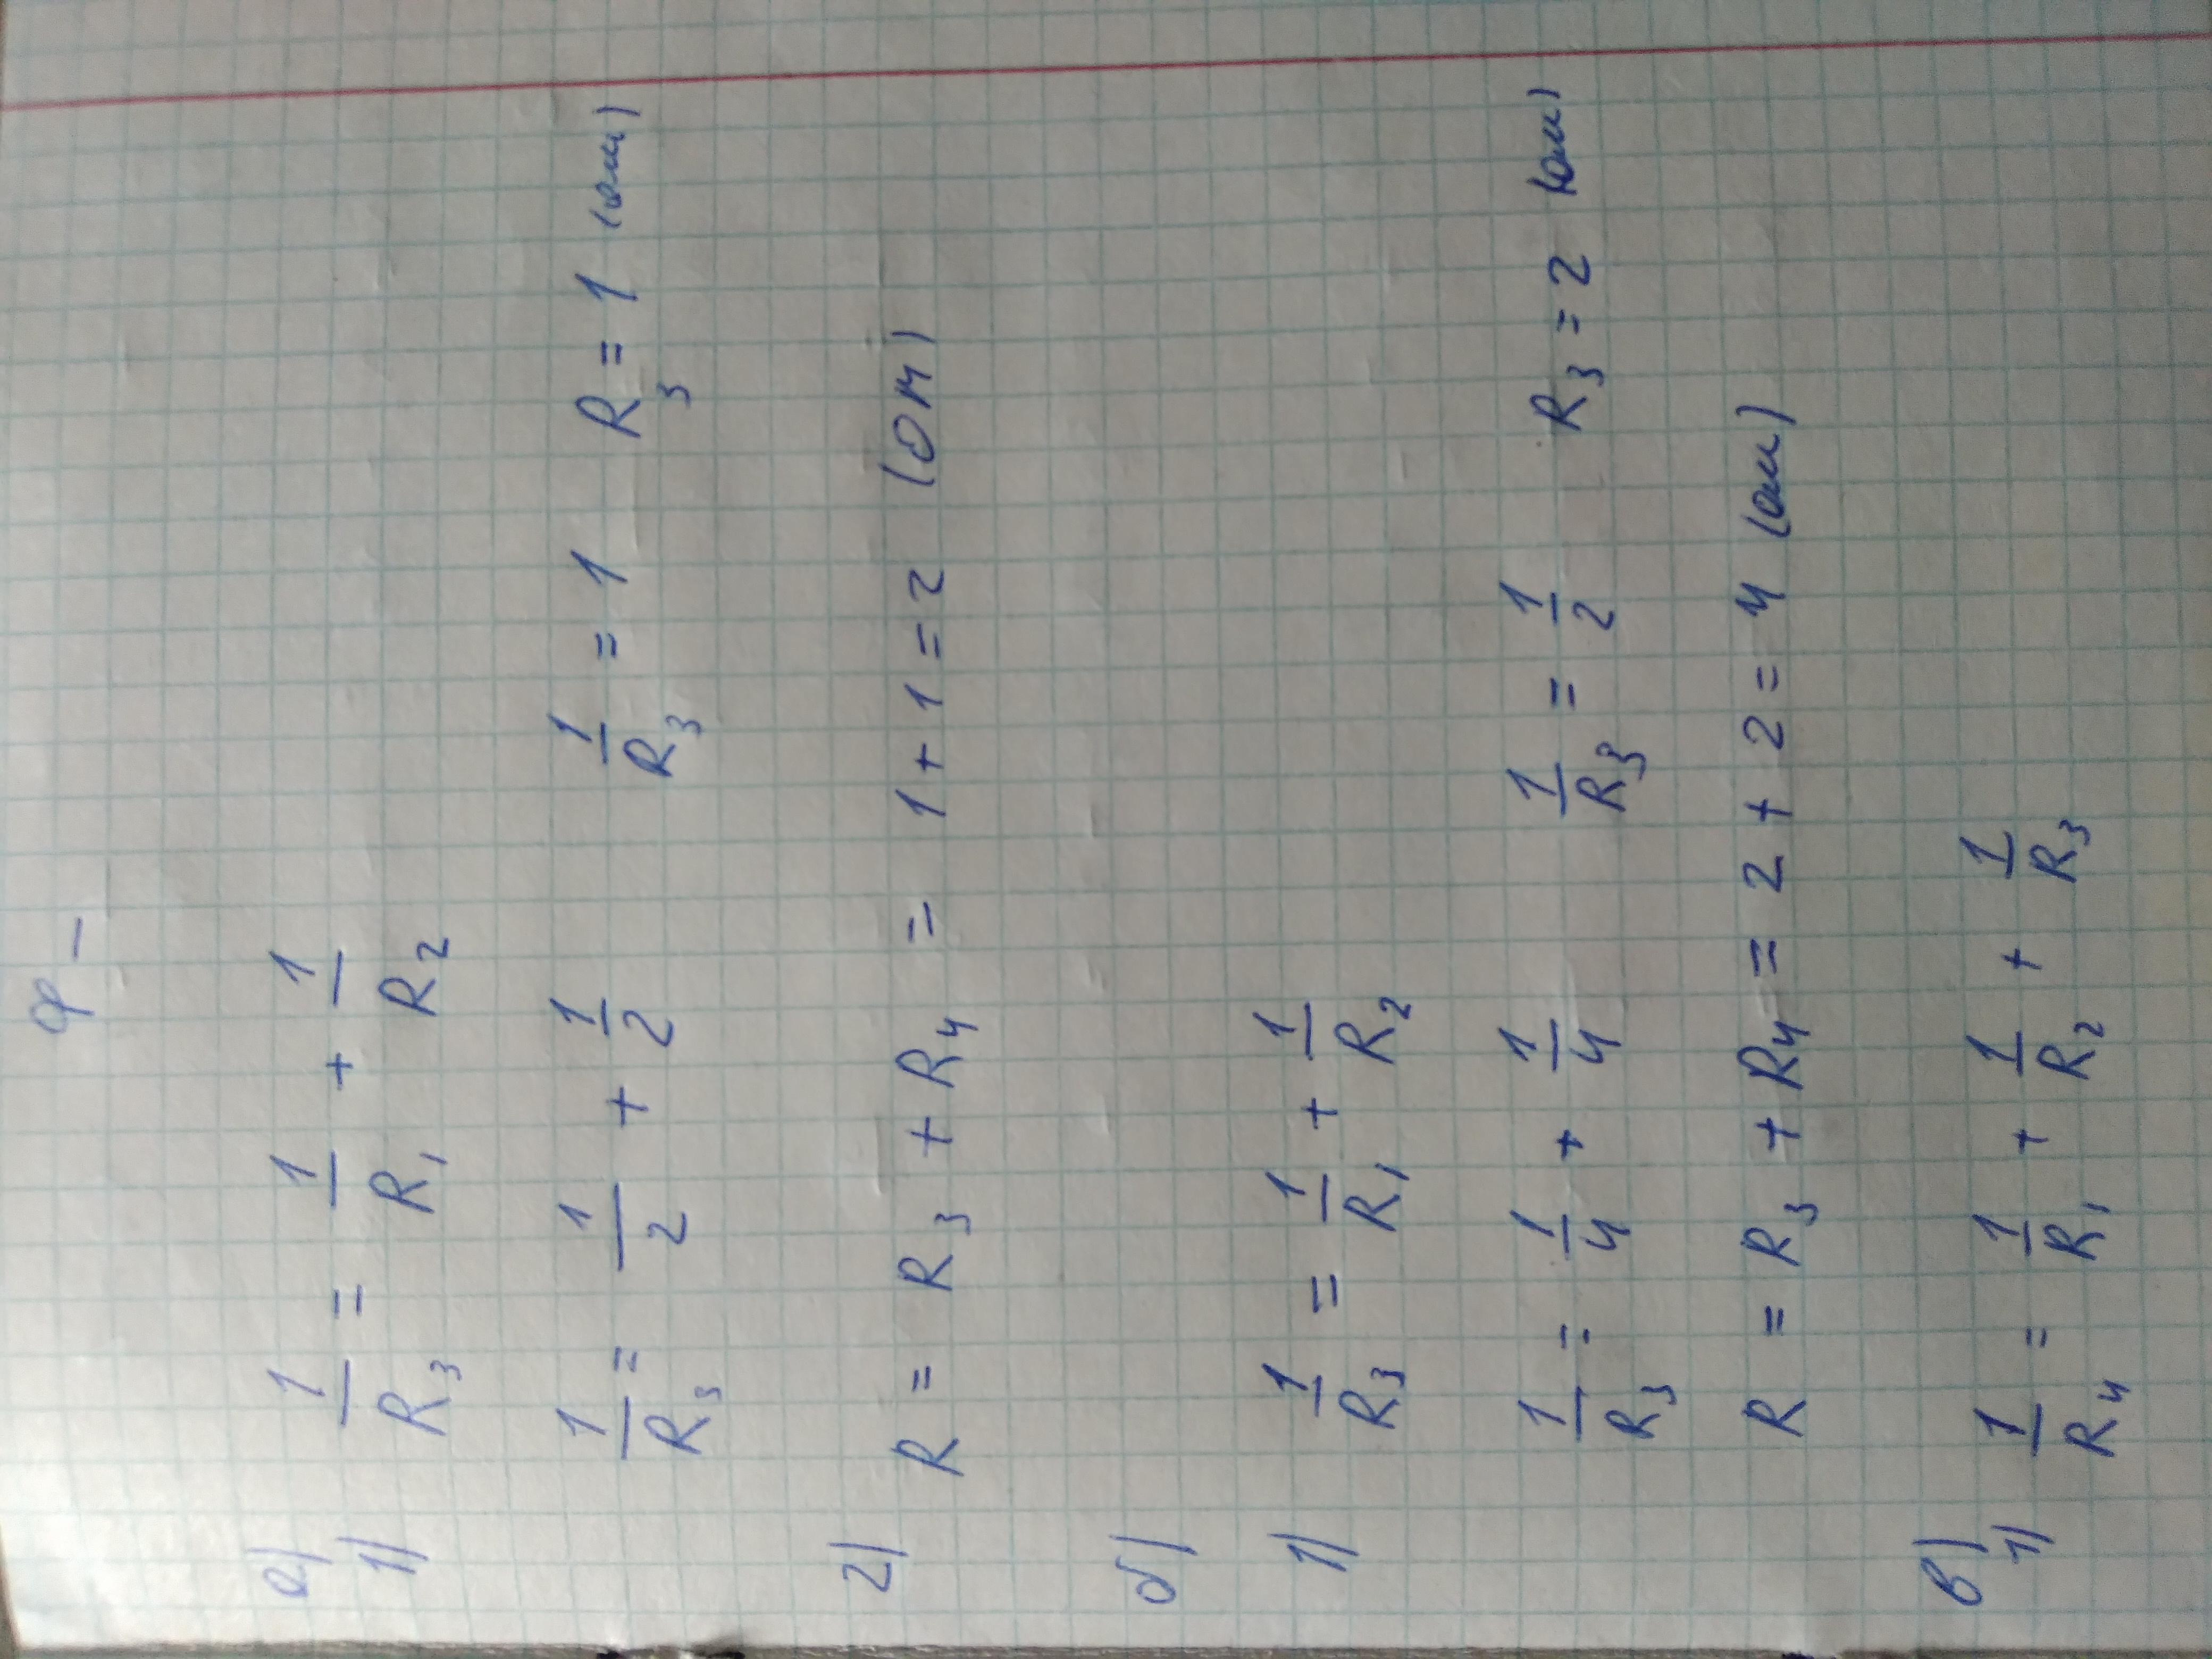 а)
1) 1/R₃ = 1/R₁ + 1/R₂
1/R₃ = 1/2 + 1/2 1/R₃ = 1 R₃ = 1 (ом)
2) R = R₃ + R₄ = 1 + 1 = 2 (Ом)
б)
1) 1/R₃ = 1/R₁ + 1/R₂
1/R₃ = 1/4 + 1/4 1/R₃ = 1/2 R₃ = 2 (ом)
R = R₃ + R₄ = 2 + 2 = 4 (ом)
в)
1) 1/R₄ = 1/R₁ + 1/R₂ + 1/R₃